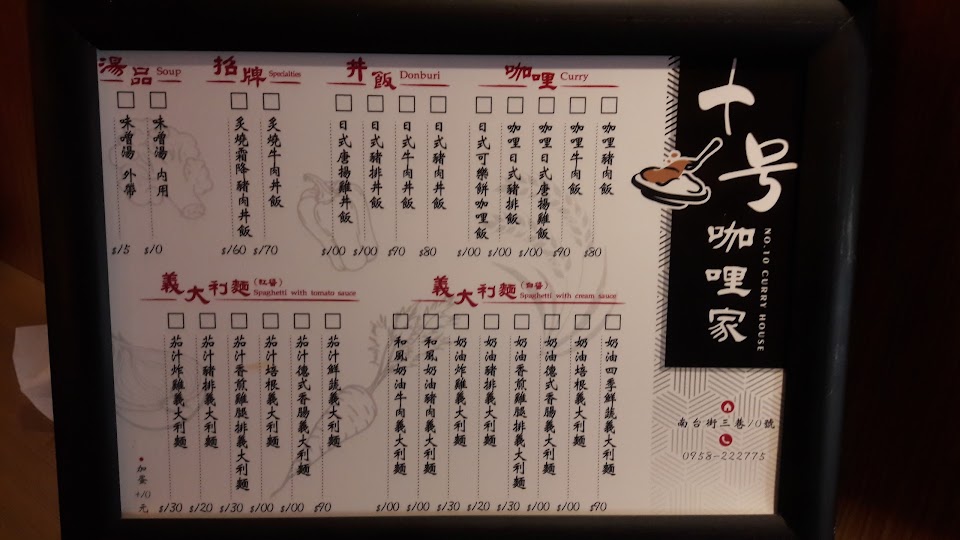 十号
咖哩家
NO.10 CURRY HOUSE
南台街三巷10號
0958-222775
咖哩 Curry
咖哩豬肉飯 $80
咖哩牛肉飯 $90
咖哩日式唐揚雞飯 $100
咖哩日式豬排飯 $100
日式可樂餅咖哩飯 $100
丼飯 Donburi
日式豬肉丼飯 $80
日式牛肉丼飯 $90
日式豬排丼飯 $100
日式唐揚雞丼飯 $100
招牌 Specialties
炙燒牛肉丼飯 $170
炙燒霜降豬肉丼飯 $160
湯品 Soup
味噌湯 內用 $10
味噌湯 外帶 $15
義大利麵(白醬)
Spaghetti with cream sauce
奶油四季鮮蔬義大利麵 $90
奶油培根義大利麵 $100
奶油德式香腸義大利麵 $100
奶油香煎雞腿排義大利麵 $130
奶油豬排義大利麵 $120
奶油炸雞義大利麵 $130
和風奶油豬肉義大利麵 $100
和風奶油牛肉義大利麵 $100
義大利麵(紅醬)
Spaghetti with tomato sauce
茄汁鮮蔬義大利麵 $90
茄汁德式香腸義大利麵 $100
茄汁培根義大利麵 $100
茄汁香煎雞腿排義大利麵 $130
茄汁豬排義大利麵 $120
茄汁炸雞義大利麵 $130
加蛋+10元